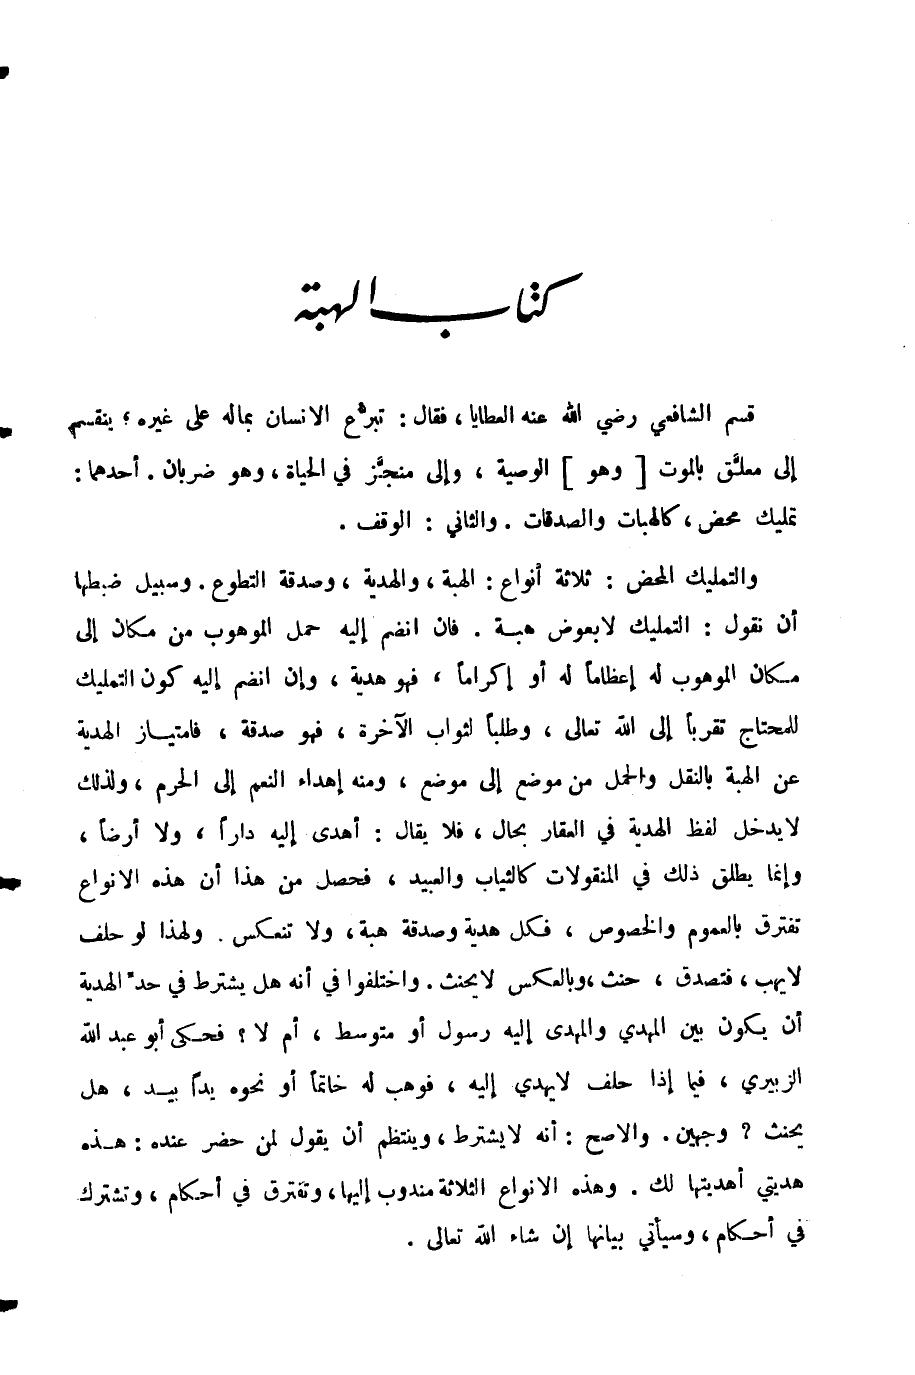 كتاب الهبة
قسم الشافعي رضي الله عنه العطايا ، فقال : تبرُّع الانسان بماله على غيره ؛ ينقسم
إلى معلَّق بالموت [ وهو ] الوصية ، وإلى منجَّز في الحياة ، وهو ضربان . أحدهما :
تمليك محض ، كالهبات والصدقات . والثاني : الوقف .
والتمليك المحض : ثلاثة أنواع : الهبة ، والهدية ، وصدقة التطوع . وسبيل ضبطها
أن نقول : التمليك لابعوض هبة . فان انضم إليه حمل الموهوب من مكان إلى
مكان الموهوب له إعظاماً له أو إكراماً ، فهو هدية ، وإن انضم إليه كون التمليك
للمحتاج تقرباً إلى الله تعالى ، وطلباً لثواب الآخرة ، فهو صدقة ، فامتياز الهدية
عن الهبة بالنقل والحمل من موضع إلى موضع ، ومنه إهداء النعم إلى الحرم ، ولذلك
لايدخل لفظ الهدية في العقار بحال ، فلا يقال : أهدى إليه داراً ، ولا أرضاً ،
وإنما يطلق ذلك في المنقولات كالثياب والعبيد ، فحصل من هذا أن هذه الانواع
تفترق بالعموم والخصوص ، فكل هدية وصدقة هبة ، ولا تنعكس . ولهذا لو حلف
لايهب ، فتصدق ، حنث ، وبالعكس لايحنث . واختلفوا في أنه هل يشترط في حدّ الهدية
أن يكون بين المهدي والمهدى إليه رسول أو متوسط ، أم لا ؟ فحكى أبو عبد الله
الزبيري ، فيما إذا حلف لايهدي إليه ، فوهب له خاتماً أو نحوه يداً بيد ، هل
يحنث ؟ وجهين . والاصح : أنه لايشترط ، وينتظم أن يقول لمن حضر عنده : هذه
هديتي أهديتها لك . وهذه الانواع الثلاثة مندوب إليها ، وتفترق في أحكام ، وتشترك
في أحكام ، وسيأتي بيانها إن شاء الله تعالى .